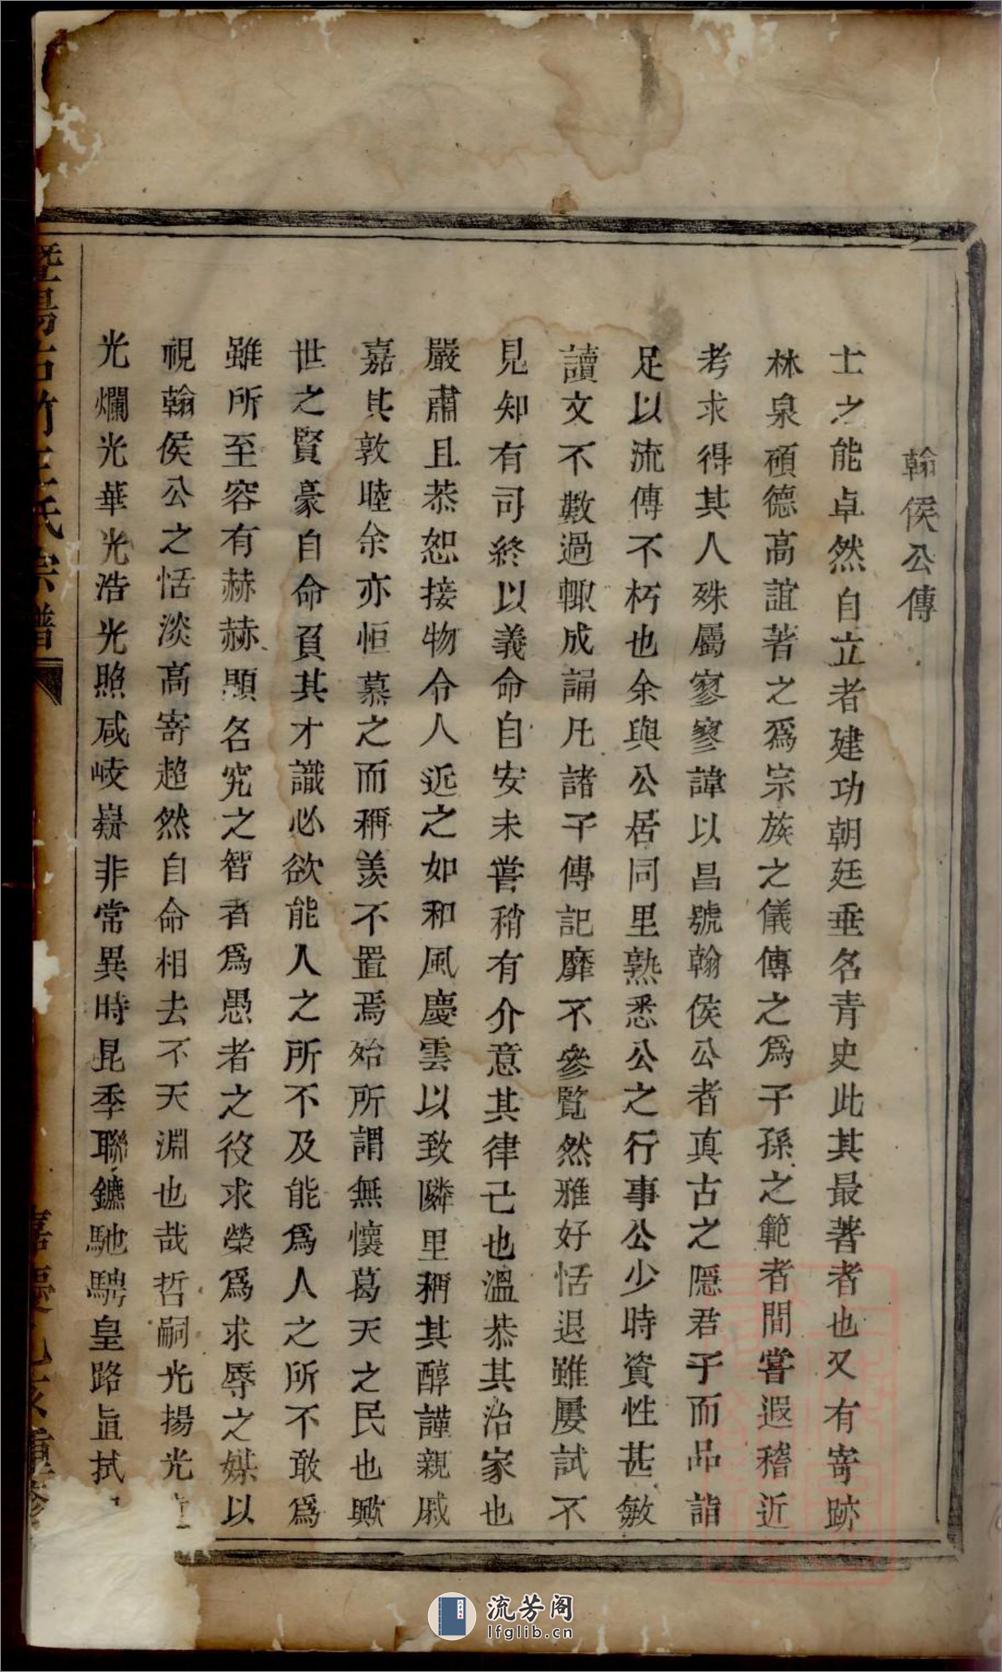 翰侯公傳
士之能卓然自立者建功朝廷垂名青史此其最著者也又有寄跡
林泉碩德高誼著之爲宗族之儀傳之爲子孫之範者間嘗遐稽近
考求得其人殊屬寥寥諱以昌號翰侯公者真古之隠君子而品詣
足以流傳不朽也余與公居同里熟悉公之行事公少時資性甚敏
讀文不數過輙成誦凡諸子傳記靡不參覧然雅好恬退雖屢試不
見知有司終以義命自安未嘗稍有介意其律己也溫恭其治家也
嚴肅且恭恕接物令人近之如和風慶雲以致隣里稱其醇謹親戚
嘉其敦睦余亦恒慕之而稱羨不置焉始所謂無懷葛天之民也歟
世之賢豪自命負其才識必欲能人之所不及能爲人之所不敢爲
雖所至容有赫赫顯名究之智者爲愚者之役求榮爲求辱之媒以
視翰侯公之恬淡高寄超然自命相去不天淵也哉哲嗣光揚光
光爛光華光浩光照咸岐嶷非常異時昆季聯鑣馳騁皇路旨拭
暨陽古竹王氏宗譜
嘉慶
重修
流芳阁
lfglib.cn